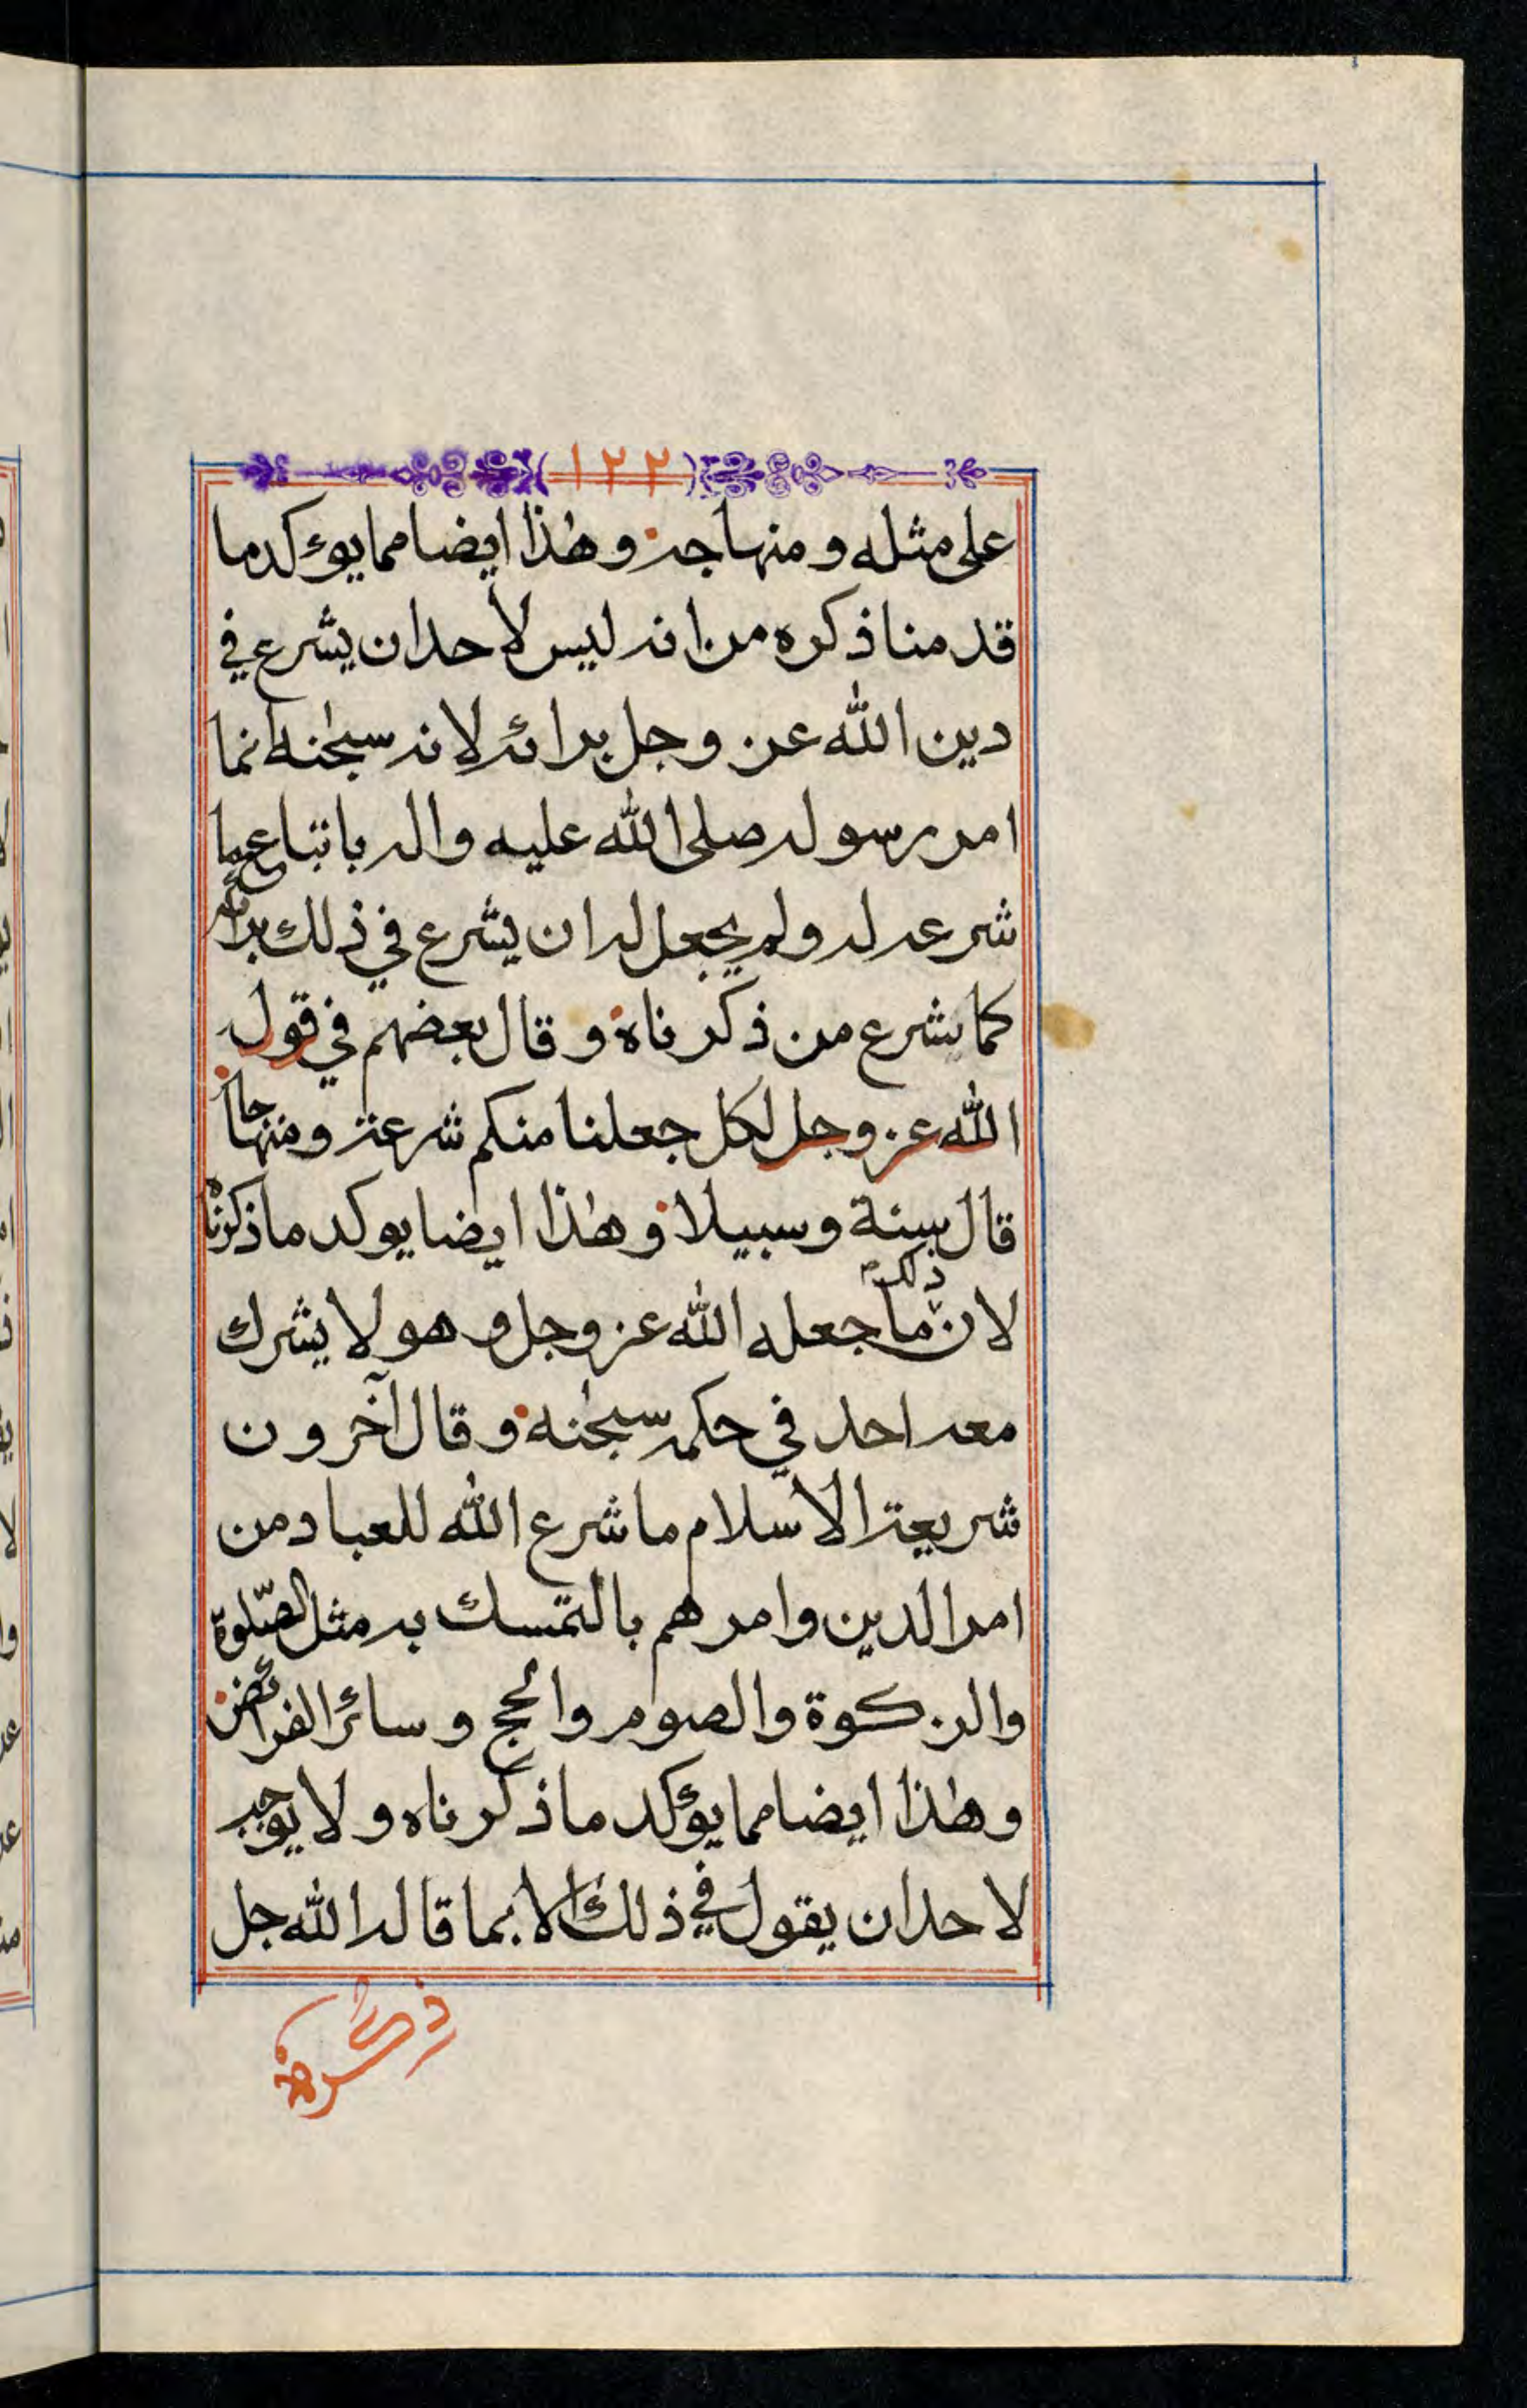 ١٢٢
على مثله ومنهاجه وهذا ايضا مما يوءكد ما
قد منا ذكره من انه ليس لاحد ان يشرع في
دين الله عز وجل برائه لانه سبحنه انما
امر رسوله صلى الله عليه واله باتباع ما
شرعه له ولم يجعل له ان يشرع في ذلك برائه
كما يشرع من ذكرناه وقال بعضهم في قول
الله عز وجل لكل جعلنا منكم شرعة ومنهاجا
قال سنة وسبيلا وهذا ايضا يوكد ما ذكرناه
لان ذلك ما جعله الله عز وجل وهو لا يشرك
معه احد في حكمه سبحنه وقال آخرون
شريعة الاسلام ما شرع الله للعباد من
امر الدين وامرهم بالتمسك به مثل الصّلوة
والزكوة والصوم والحج وسائر الفرائض
وهذا ايضا مما يؤكد ما ذكرناه ولا يوجب
لاحد ان يقول في ذلك الا بما قاله الله جل
ذكره